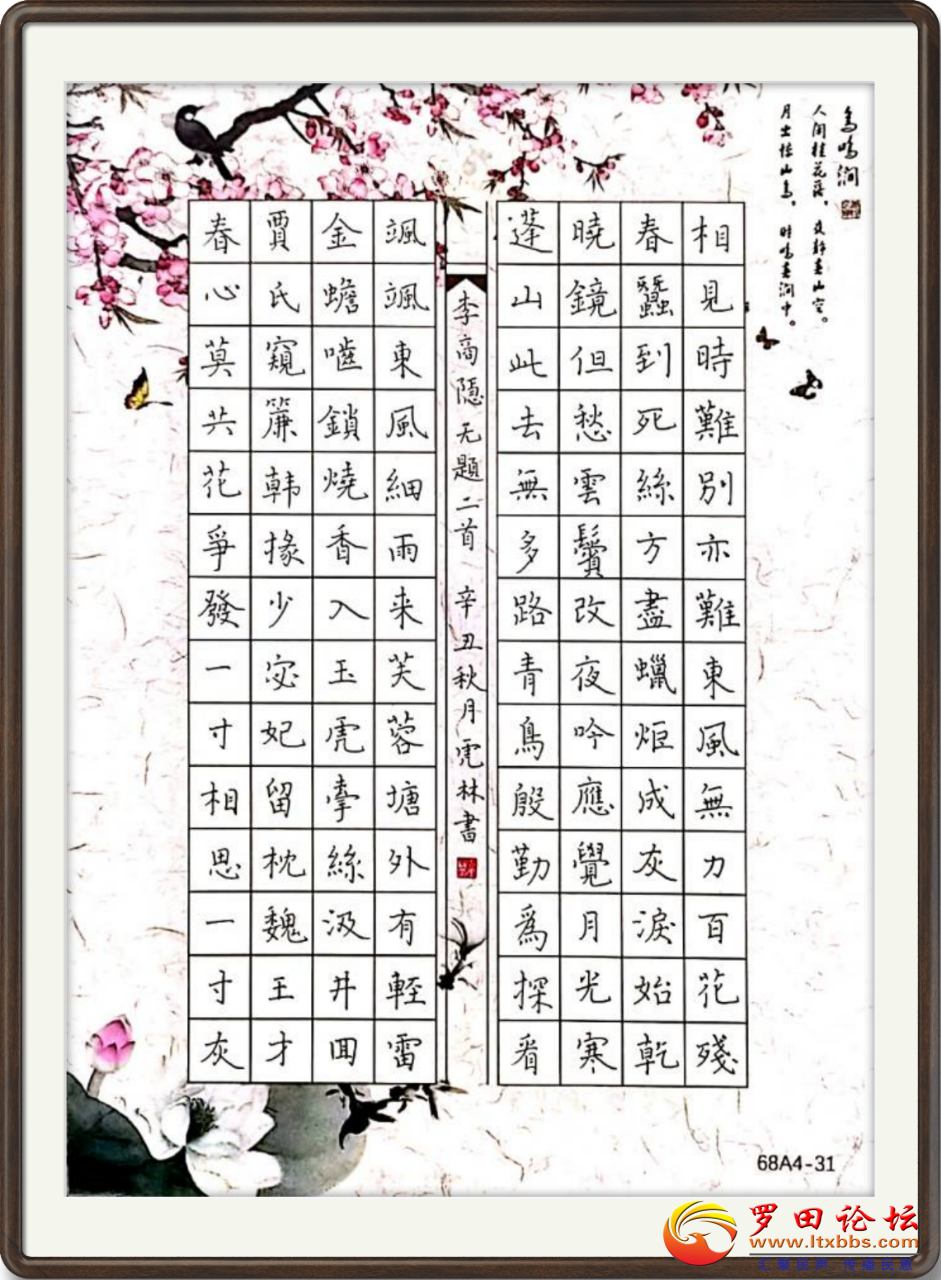 鳥鳴澗
人闲桂花落，夜静春山空。
月出惊山鸟，时鸣春涧中。
相見時難別亦難東風無力百花殘
春蠶到死絲方盡蠟炬成灰淚始乾
曉鏡但愁雲鬢改夜吟應覺月光寒
蓬山此去無多路青鳥殷勤爲探看
李商隱无題二首 辛丑秋月虎林書
颯颯東風細雨来芙蓉塘外有輕雷
金蟾嚙鎖燒香入玉虎牽絲汲井回
賈氏窺簾韩掾少宓妃留枕魏王才
春心莫共花爭發一寸相思一寸灰
68A4-31
罗田论坛
www.ltxbbs.com